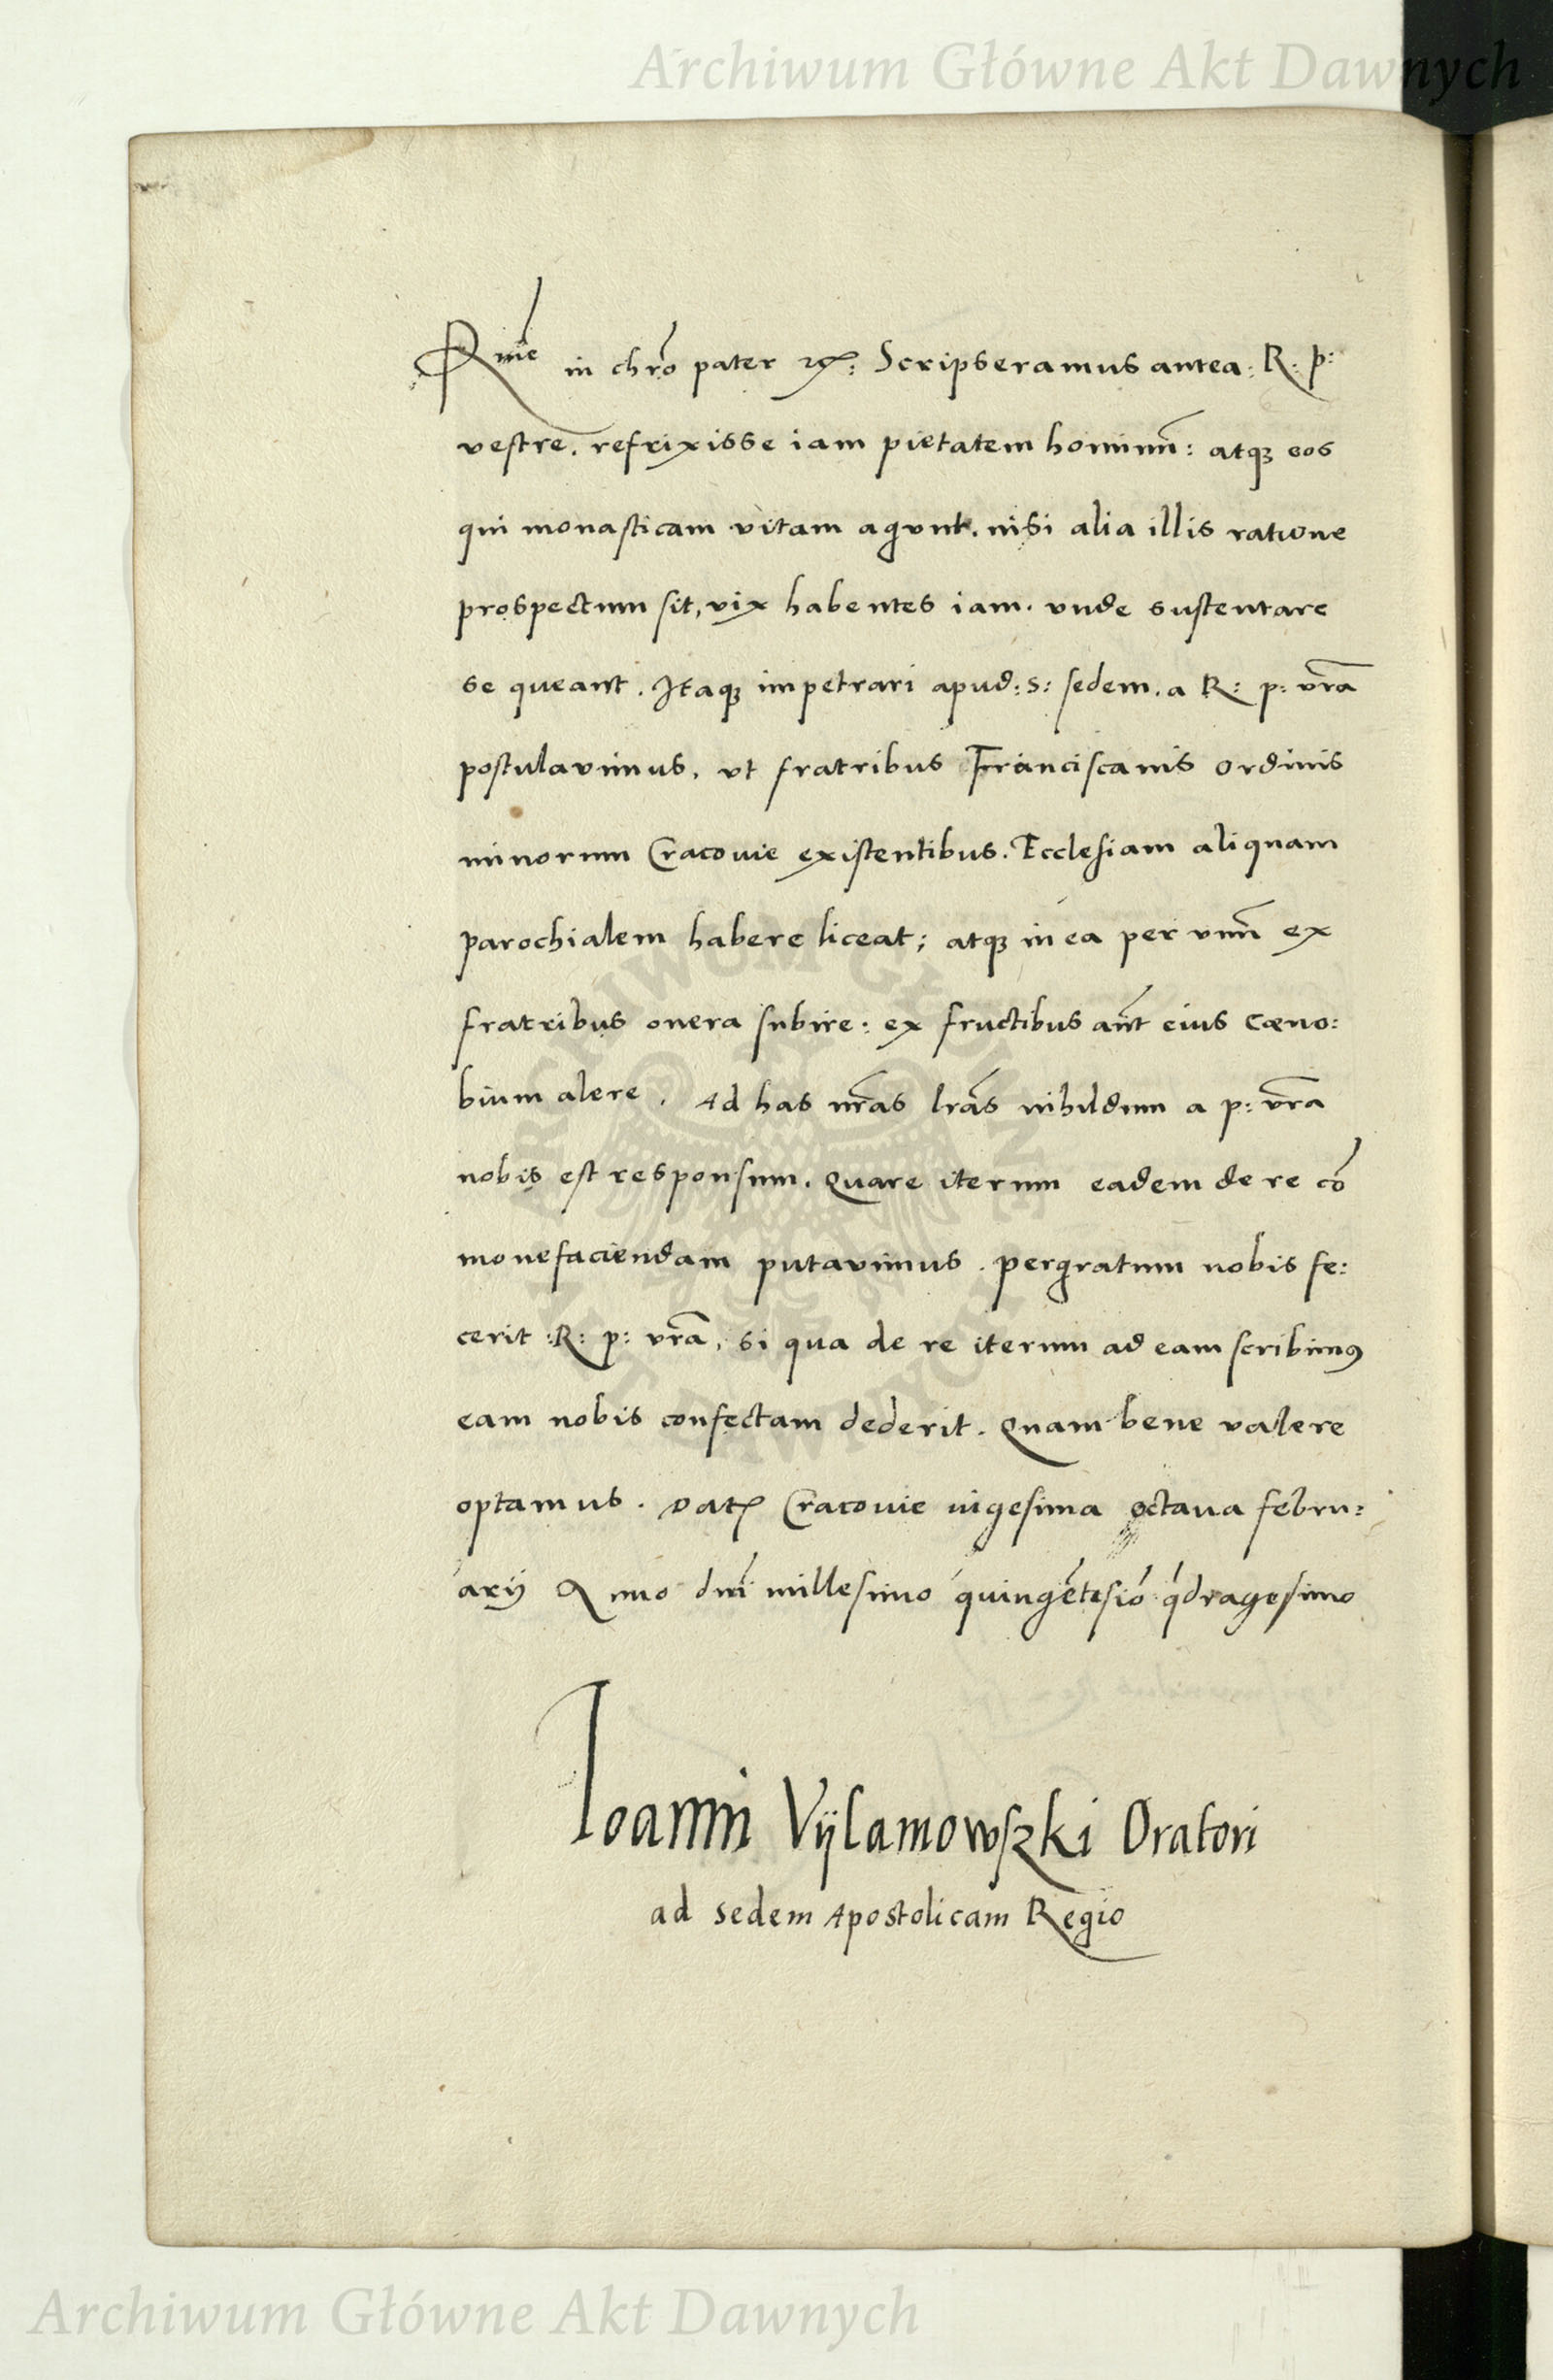 Archiwum Główne Akt Dawnych
Rme in chro pater etc: Scripseramus antea: R. p:
vestre. refrixisse iam pietatem hominu: atq3 eos
qui monasticam vitam agunt. nisi alia illis ratione
prospectum sit, vix habentes iam. vnde sustentare
se queant. Itaq3 impetrari apud: S: sedem. a R: p: vra
postulavimus, vt fratribus Franciscanis ordinis
minorum Cracovie existentibus. Ecclesiam aliquam
parochialem habere liceat; atq3 in ea per vnu ex
fratribus onera subire: ex fructibus aut eius cœno:
bium alere. Ad has nras lras nihildum a p: vra
nobis est responsum. Quare iterum eadem de re co
monefaciendam putavimus. pergratum nobis fe:
cerit :R: p: vra, si qua de re iterum ad eam scribim9
eam nobis confectam dederit. Quam bene valere
optamus. Dat Cracovie vigesima octava febru:
arij Anno dni millesimo quingetesio qdragesimo
Ioanni Vÿlamowszki Oratori
ad sedem Apostolicam Regio
ARCHIWUM GŁÓWNE AKT DAWNYCH
Archiwum Główne Akt Dawnych